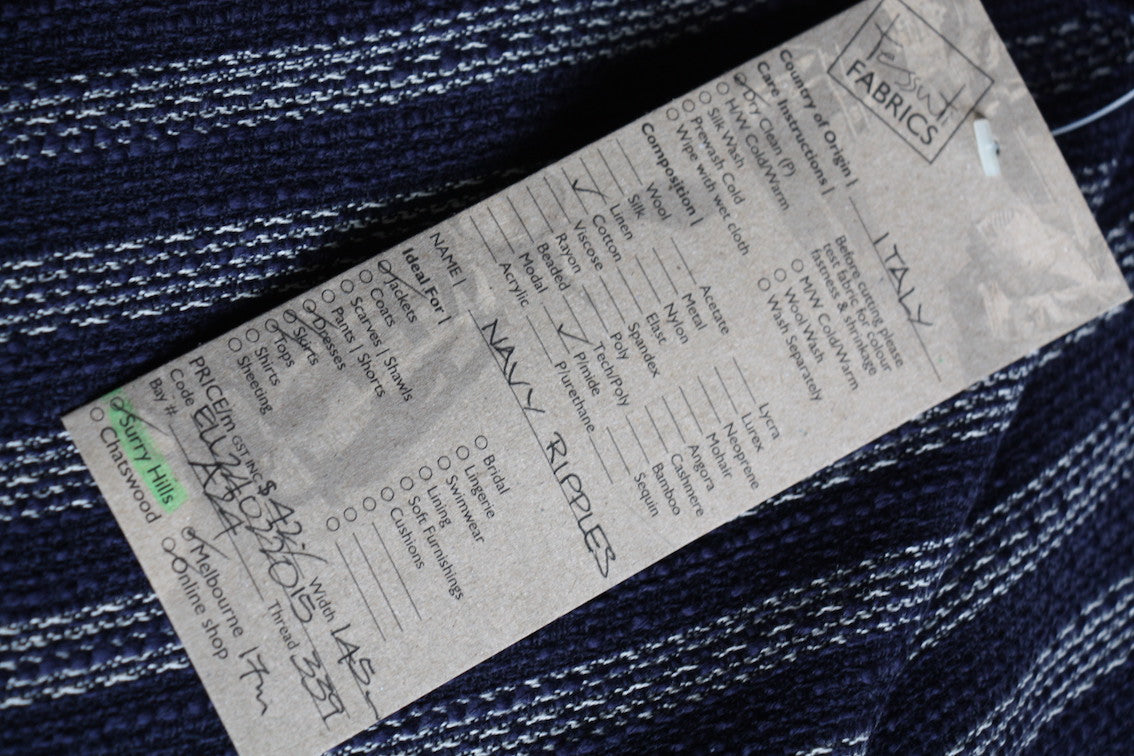 Tessuti
FABRICS
Country of Origin | ITALY
Care Instructions |
Dry Clean (P)
H/W Cold/Warm
Silk Wash
Prewash Cold
Wipe with wet cloth
Before cutting please
test fabric for colour
fastness & shrinkage
M/W Cold/Warm
Wool Wash
Wash Separately
Composition |
Wool
Silk
Linen
✓ Cotton
Viscose
Rayon
Beaded
Modal
Acrylic
Acetate
Metal
Nylon
Elast
Spandex
Poly
Tech/Poly
✓ P/mide
P/urethane
Lycra
Lurex
Neoprene
Mohair
Angora
Cashmere
Bamboo
Sequin
NAME | NAVY RIPPLES
Ideal For |
Jackets
Coats
Scarves | Shawls
Pants | Shorts
Dresses
Skirts
Tops
Shirts
Sheeting
Bridal
Lingerie
Swimwear
Lining
Soft Furnishings
Cushions
PRICE/m GST INC $42./ Width 145
Code Thread 339
Bay # A24
Surry Hills
Chatswood
Melbourne 17m
Online shop